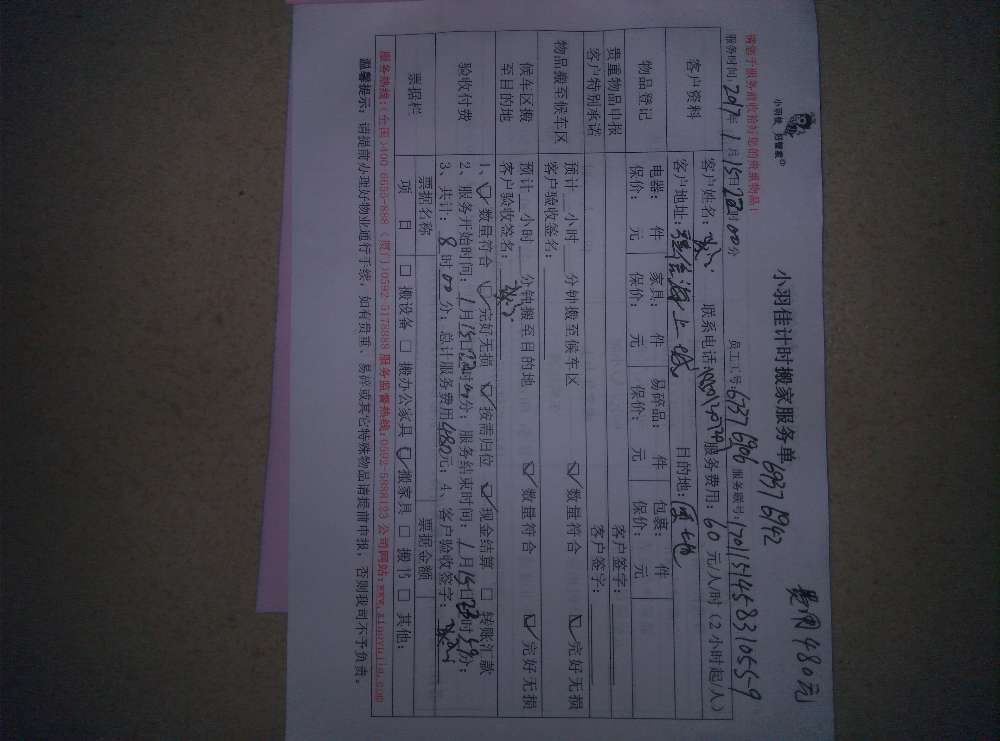 费用480元
小羽佳 好管家
小羽佳计时搬家服务单
6937 6942
请您于服务前收拾好您的贵重物品!
员工工号:6737 6906 服务联号:170115145831055-9
服务时间:2017年1月15日 时00分
客户资料 客户姓名: 联系电话: 服务费用:60元/人/时(2小时起/人)
客户地址: 海上 目的地:
物品登记 电器: 件 家具: 件 易碎品: 件 包裹: 件
保价: 元 保价: 元 保价: 元 保价: 元
贵重物品申报 客户签字:
客户特别承诺 客户签字:
物品搬至候车区 预计__小时__分钟搬至候车区 ☑数量符合 ☑完好无损
客户验收签名:
候车区搬至目的地 预计__小时__分钟搬至目的地 ☑数量符合 ☑完好无损
客户验收签名:
验收付费 1、☑数量符合 ☑完好无损 ☑按需归位 ☑现金结算 □转账汇款
2、服务开始时间:1月15日 时00分;服务结束时间:1月15日 时 分;
3、共计:8时00分;总计服务费用480元;4、客户验收签字:
票据栏 票据名称 票据金额
项目 □搬设备 □搬办公家具 ☑搬家具 □搬书 □其他:
服务热线:(全国)400-6630-888 (厦门)0592-5178888 服务监督热线:0592-5898123 公司网站:www.xiaoyujia.com
温馨提示:请提前办理好物业通行手续,如有贵重、易碎或其它特殊物品请提前申报,否则我司不予负责。